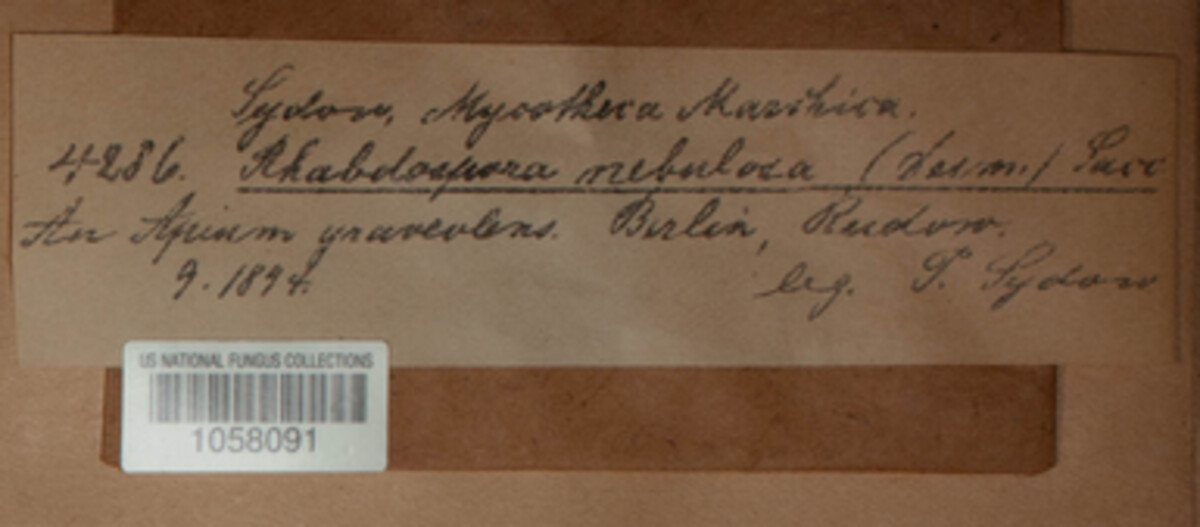 Sydow, Mycotheca Marchica.
4286. Rhabdospora nebulosa (Desm.) Sacc
An Apium graveolens. Berlin, Rudow.
9. 1894.
leg. P. Sydow
US NATIONAL FUNGUS COLLECTIONS
1058091